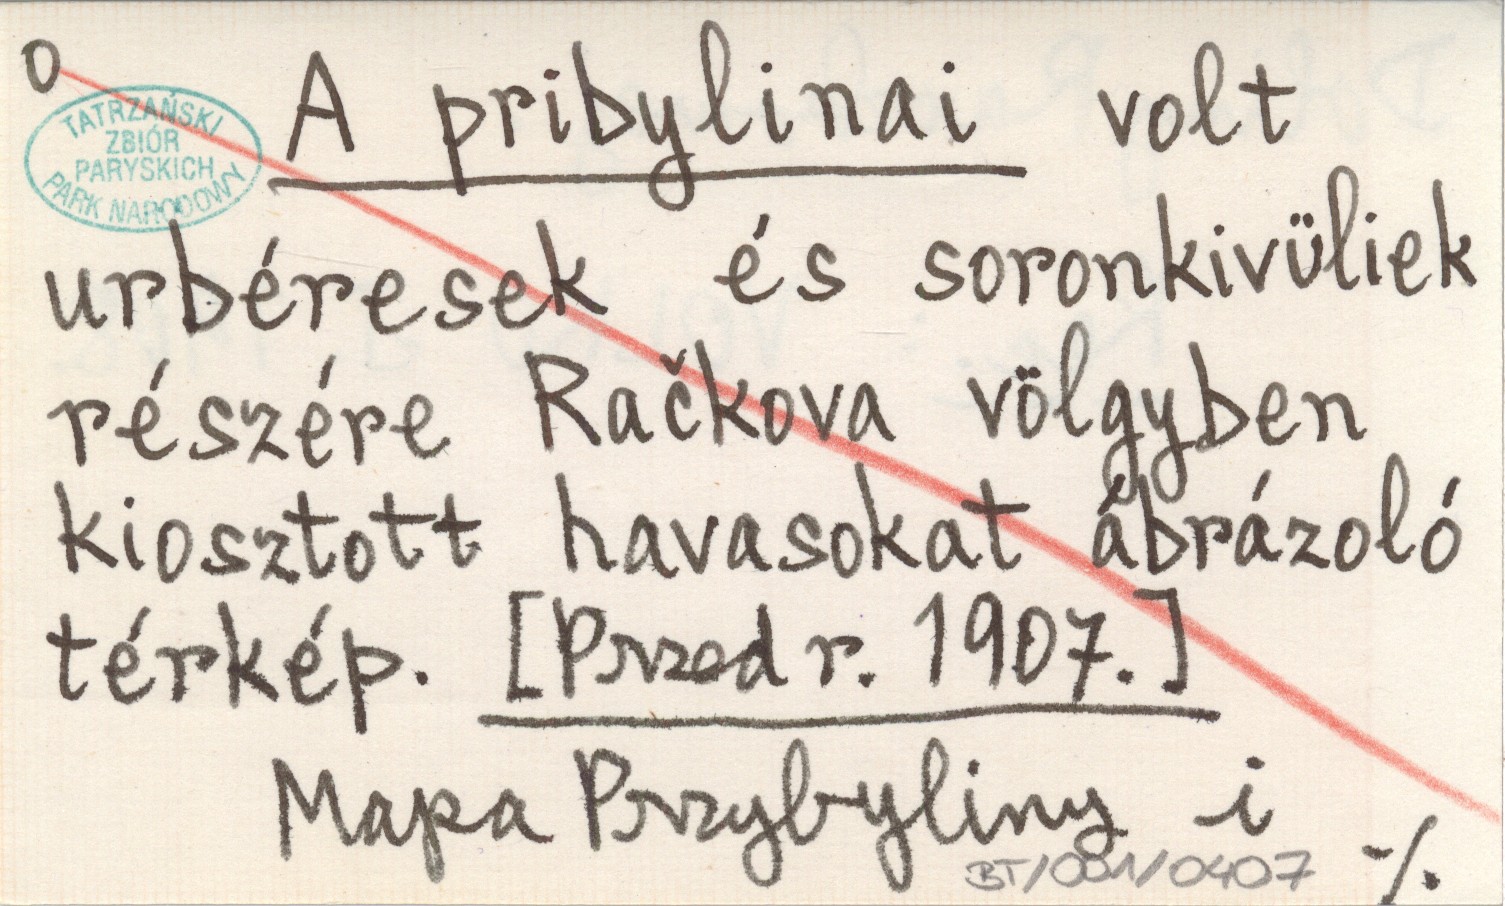 O
TATRZAŃSKI
ZBIÓR
PARYSKICH
PARK NARODOWY
A pribylinai volt
urbéresek és soronkivüliek
részére Račkova völgyben
kiosztott havasokat ábrázoló
térkép. [Przed r. 1907.]
Mapa Przybyliny i
BT/001/0407
-/.